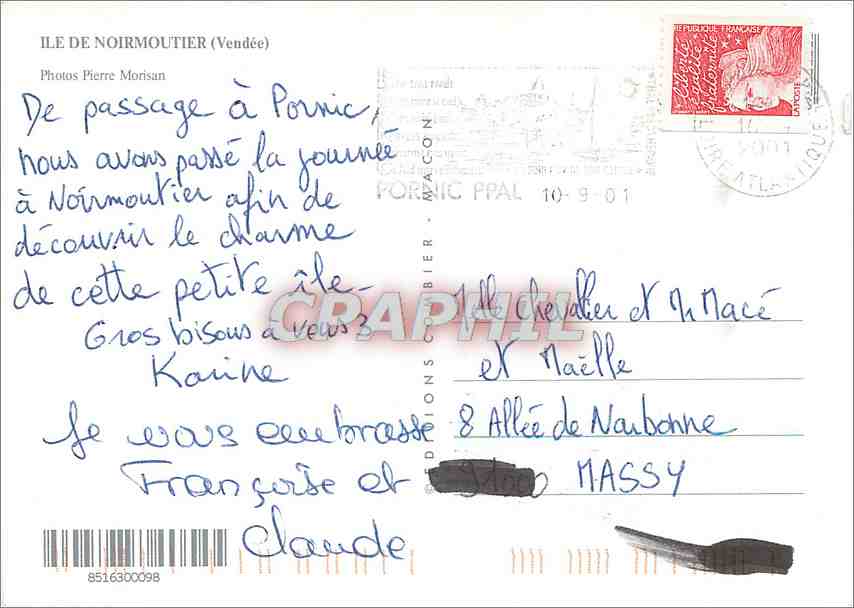 ILE DE NOIRMOUTIER (Vendée)
Photos Pierre Morisan
De passage à Pornic,
nous avons passé la journée
à Noirmoutier afin de
découvrir le charme
de cette petite île -
Gros bisous à vous 3
Karine
Je vous embrasse
Françoise et
Claude
8516300098
EDITIONS COMBIER - MACON
RÉPUBLIQUE FRANÇAISE
Liberté
égalité
fraternité
LA POSTE
PORNIC PPAL 10-9-01
2001
LOIRE ATLANTIQUE
Melle Chevalier et Mr Macé
et Maëlle
8 Allée de Narbonne
MASSY
CRAPHIL